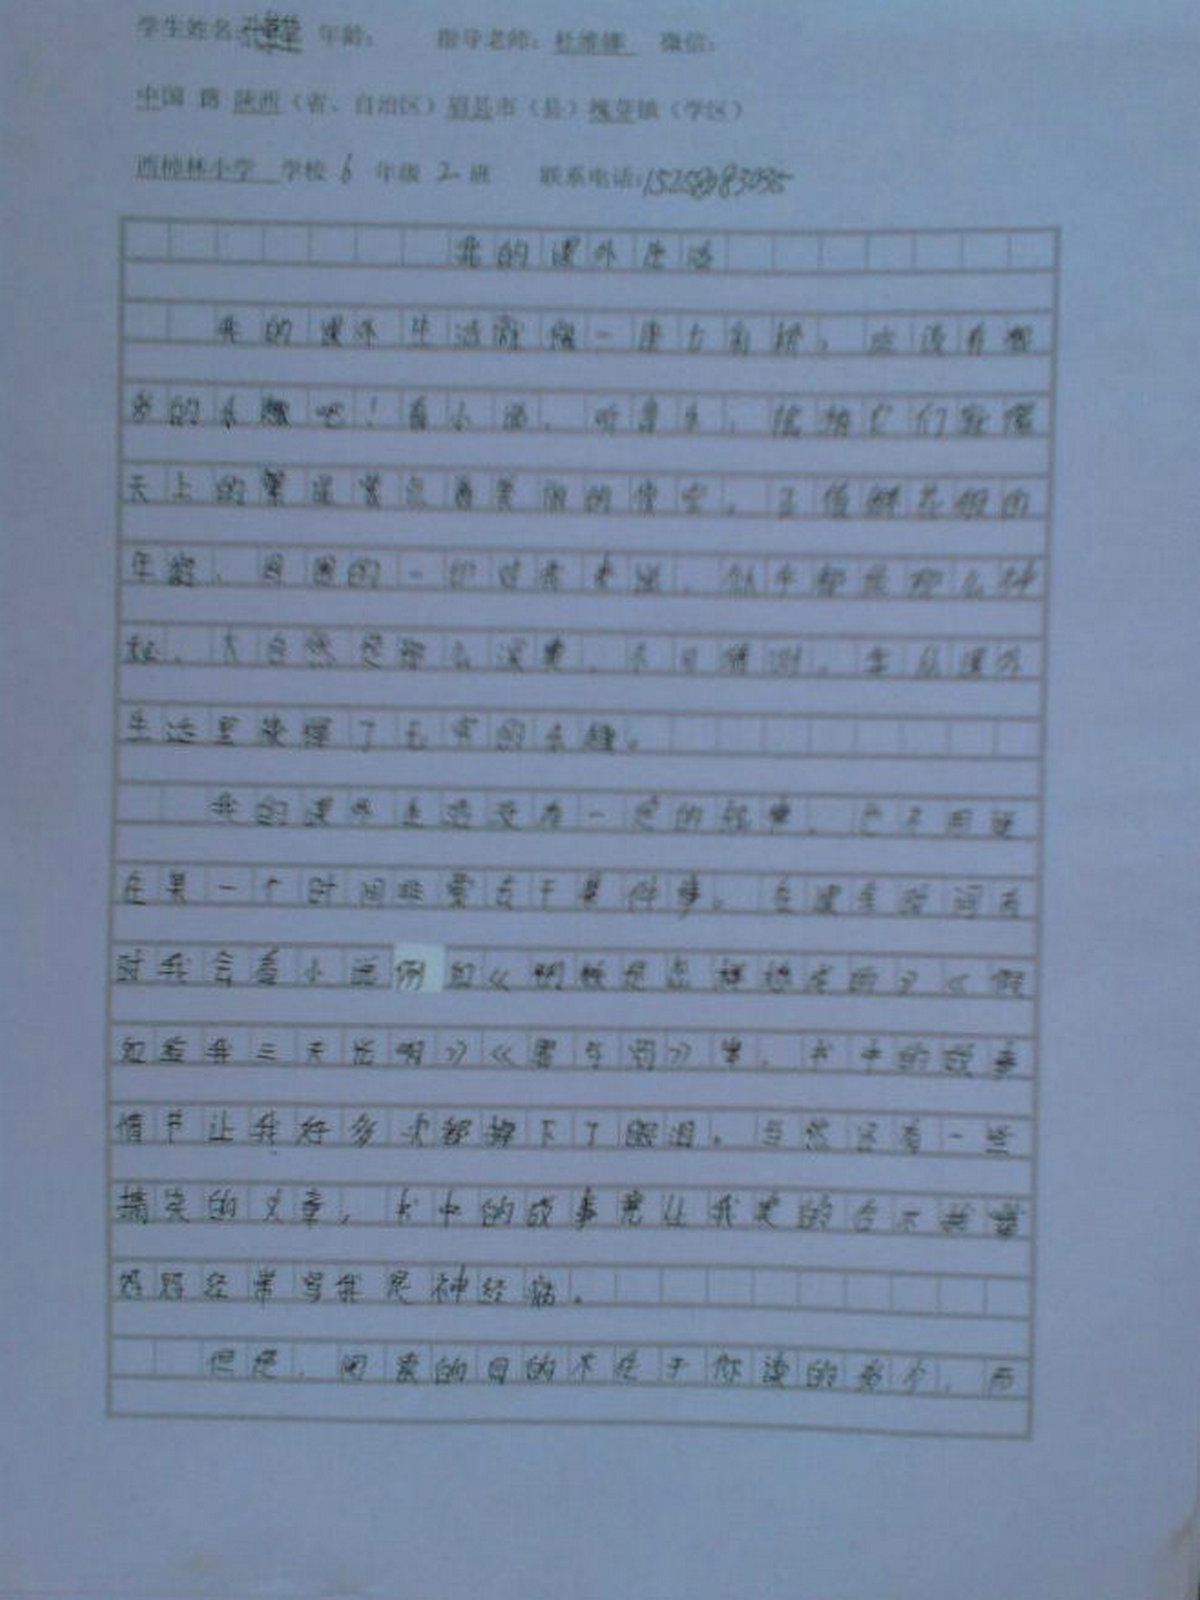 学生姓名： 年龄： 指导老师：杜维娜 微信：
中国 路 陕西（省、自治区）眉县市（县）槐芽镇（学区）
西柿林小学 学校 6 年级 2 班 联系电话：
我的课外生活
我的课外生活就像一座方角楼，应该有很
多的乐趣吧！看小说、听音乐，仿佛它们就像
天上的繁星常点着美丽的夜空。正值鲜花般的
年龄，周围的一切过去来说，似乎都是那么神
秘，大自然是那么深奥，不可猜测。在从课外
生活里获得了无穷的乐趣。
我的课外生活没有一定的规律，它不用说
在某一个时间非要去干某件事。在课余时间有
时我会看小说例如《钢铁是怎样炼成的》《假
如给我三天光明》《骆驼祥子》等，书中的故事
情节让我好多次都掉下了眼泪。当然还有一些
搞笑的文章，书中的故事竟让我笑的合不拢嘴
妈妈经常骂我是神经病。
但是，阅读的目的不在于你读的多少，而